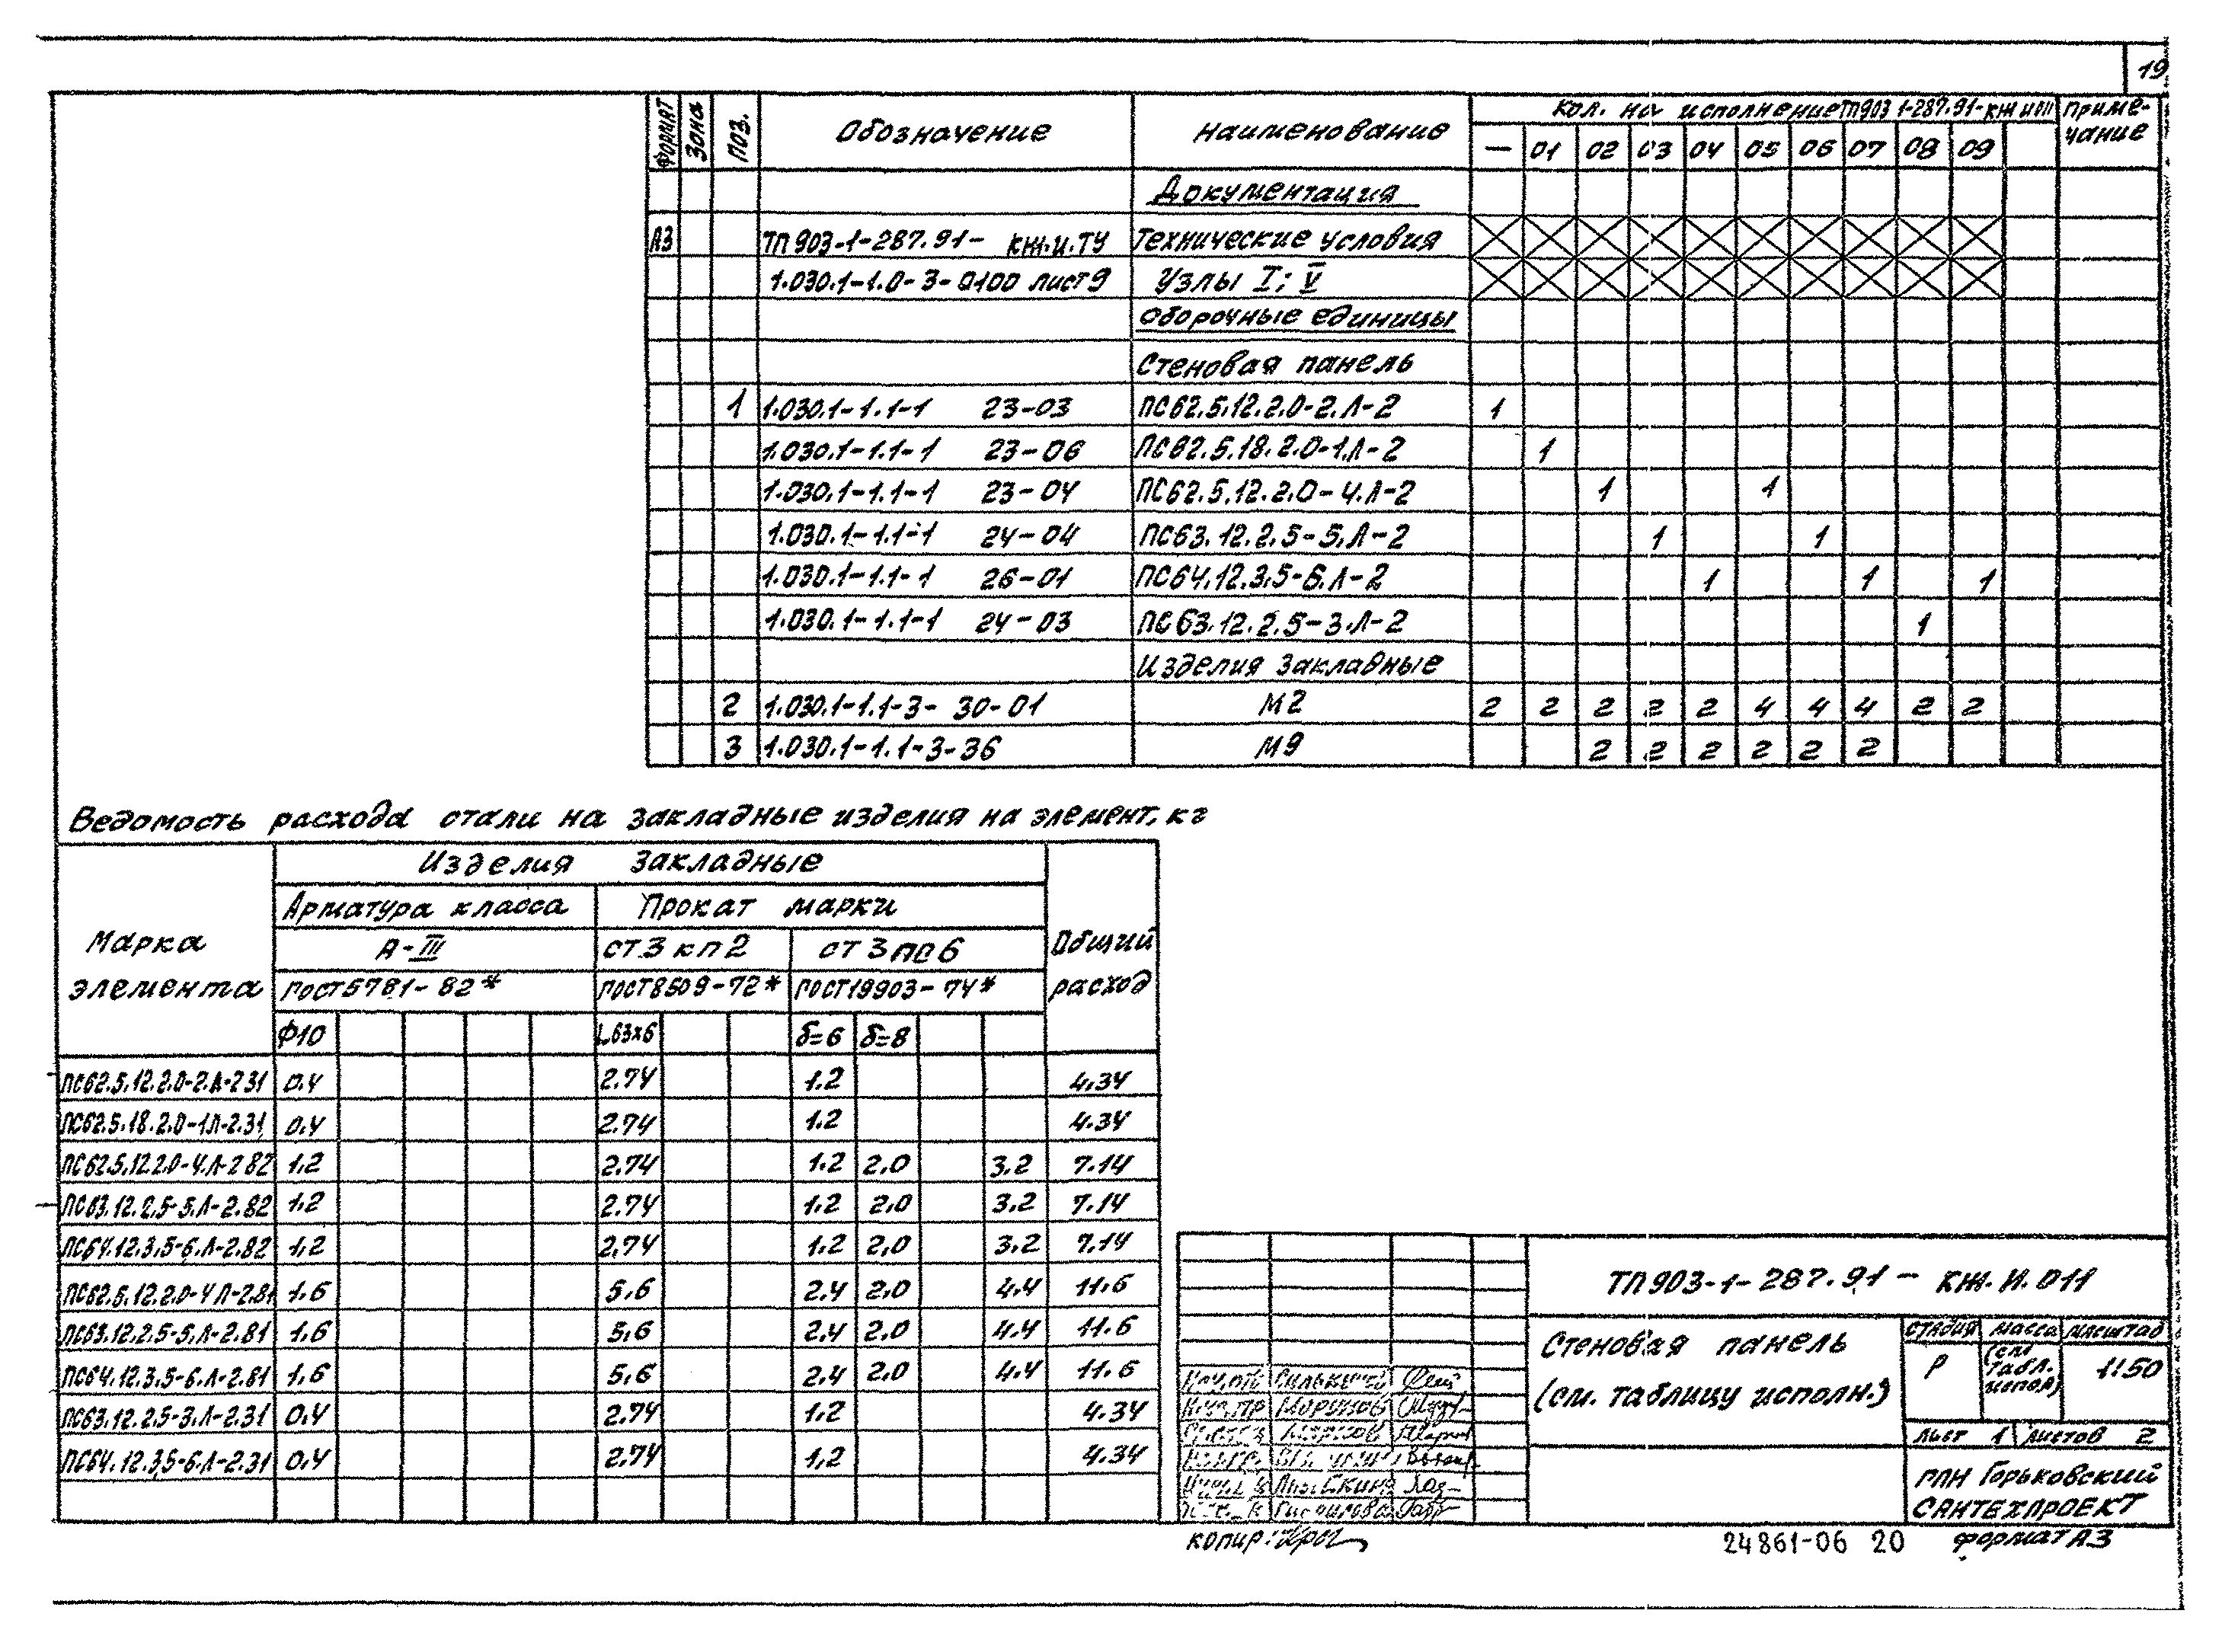 19
ФОРМАТ Зона Поз. Обозначение Наименование Кол. на исполнение ТП903-1-287.91-КЖ.И.011 Примечание
— 01 02 03 04 05 06 07 08 09
Документация
А3 ТП903-1-287.91- КЖ.И.ТУ Технические условия
1.030.1-1.0-3-0100 лист 9 Узлы I; V
Сборочные единицы
Стеновая панель
1 1.030.1-1.1-1 23-03 ПС62.5.12.2.0-2.Л-2 1
1.030.1-1.1-1 23-06 ПС62.5.18.2.0-1.Л-2 1
1.030.1-1.1-1 23-04 ПС62.5.12.2.0-4.Л-2 1 1
1.030.1-1.1-1 24-04 ПС63.12.2.5-5.Л-2 1 1
1.030.1-1.1-1 26-01 ПС64.12.3.5-6.Л-2 1 1 1
1.030.1-1.1-1 24-03 ПС63.12.2.5-3.Л-2 1
Изделия закладные
2 1.030.1-1.1-3-30-01 М2 2 2 2 2 2 4 4 4 2 2
3 1.030.1-1.1-3-36 М9 2 2 2 2 2 2
Ведомость расхода стали на закладные изделия на элемент, кг
Марка элемента Изделия закладные Общий расход
Арматура класса Прокат марки
А-III ст3кп2 ст3пс6
ГОСТ5781-82* ГОСТ8509-72* ГОСТ19903-74*
Ф10 L63х6 δ=6 δ=8
ПС62.5.12.2.0-2.Л-2.31 0.4 2.74 1.2 4.34
ПС62.5.18.2.0-1Л-2.31 0.4 2.74 1.2 4.34
ПС62.5.12.2.0-4.Л-2.82 1.2 2.74 1.2 2.0 3.2 7.14
ПС63.12.2.5-5.Л-2.82 1.2 2.74 1.2 2.0 3.2 7.14
ПС64.12.3.5-6.Л-2.82 1.2 2.74 1.2 2.0 3.2 7.14
ПС62.5.12.2.0-4Л-2.81 1.6 5.6 2.4 2.0 4.4 11.6
ПС63.12.2.5-5.Л-2.81 1.6 5.6 2.4 2.0 4.4 11.6
ПС64.12.3.5-6.Л-2.81 1.6 5.6 2.4 2.0 4.4 11.6
ПС63.12.2.5-3.Л-2.31 0.4 2.74 1.2 4.34
ПС64.12.3.5-6.Л-2.31 0.4 2.74 1.2 4.34
ТП903-1-287.91- КЖ.И.011
Стеновая панель
(см. таблицу исполн.)
стадия масса масштаб
Р (см. табл. испол.) 1:50
лист 1 листов 2
ГПИ Горьковский
САНТЕХПРОЕКТ
копир:
24861-06 20 формат А3